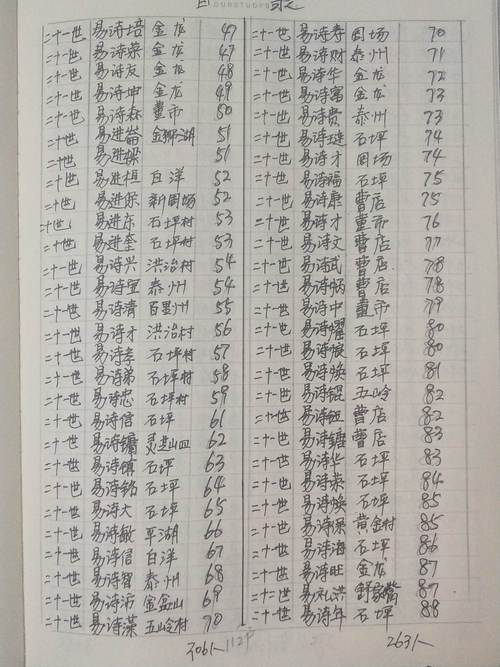 录
二十一世 易诗培 金龙 47
二十一世 易诗荣 金龙 47
二十一世 易诗友 金龙 48
二十一世 易诗坤 金龙 49
二十一世 易诗森 董市 50
二十世 易进崙 51
二十世 易进樑 51
二十世 易进恒 白洋 52
二十世 易进保 新周场 52
二十世 易进东 石坪村 53
二十世 易进奎 石坪村 53
二十一世 易诗兴 洪治村 54
二十一世 易诗宝 泰州 54
二十一世 易诗清 百里州 55
二十一世 易诗才 洪治村 56
二十一世 易诗孝 石坪村 57
二十一世 易诗弟 石坪村 58
二十一世 易诗忠 石坪村 59
二十一世 易诗信 石坪 61
二十一世 易诗镛 灵芝山四 62
二十一世 易诗镇 石坪 63
二十一世 易诗铭 石坪 64
二十一世 易诗大 石坪 65
二十一世 易诗敏 平湖 66
二十一世 易诗信 白洋 67
二十一世 易诗智 泰州 68
二十一世 易诗沛 金盆山 69
二十一世 易诗藻 五岭村 70
306人
112户
二十一世 易诗寿 周场 70
二十一世 易诗财 泰州 71
二十一世 易诗华 金龙 72
二十一世 易诗富 金龙 73
二十一世 易诗贵 泰州 73
二十一世 易诗 石坪 74
二十一世 易诗才 周场 74
二十一世 易诗福 石坪 75
二十一世 易诗康 曹店 75
二十一世 易诗才 董市 76
二十一世 易诗文 曹店 77
二十一世 易诗武 曹店 78
二十一世 易诗炳 曹店 78
二十一世 易诗中 董市 79
二十一世 易诗耀 石坪 80
二十一世 易诗 石坪 80
二十一世 易诗焕 石坪 81
二十一世 易诗锟 五岭 82
二十一世 易诗 曹店 82
二十一世 易诗镛 曹店 83
二十一世 易诗华 石坪 83
二十一世 易诗荣 石坪 84
二十一世 易诗焕 石坪 85
二十一世 易诗保 黄金村 85
二十一世 易诗海 石坪 86
二十一世 易诗旺 金龙 87
二十二世 易礼洪 舒家嘴 87
二十一世 易诗年 石坪 88
263人